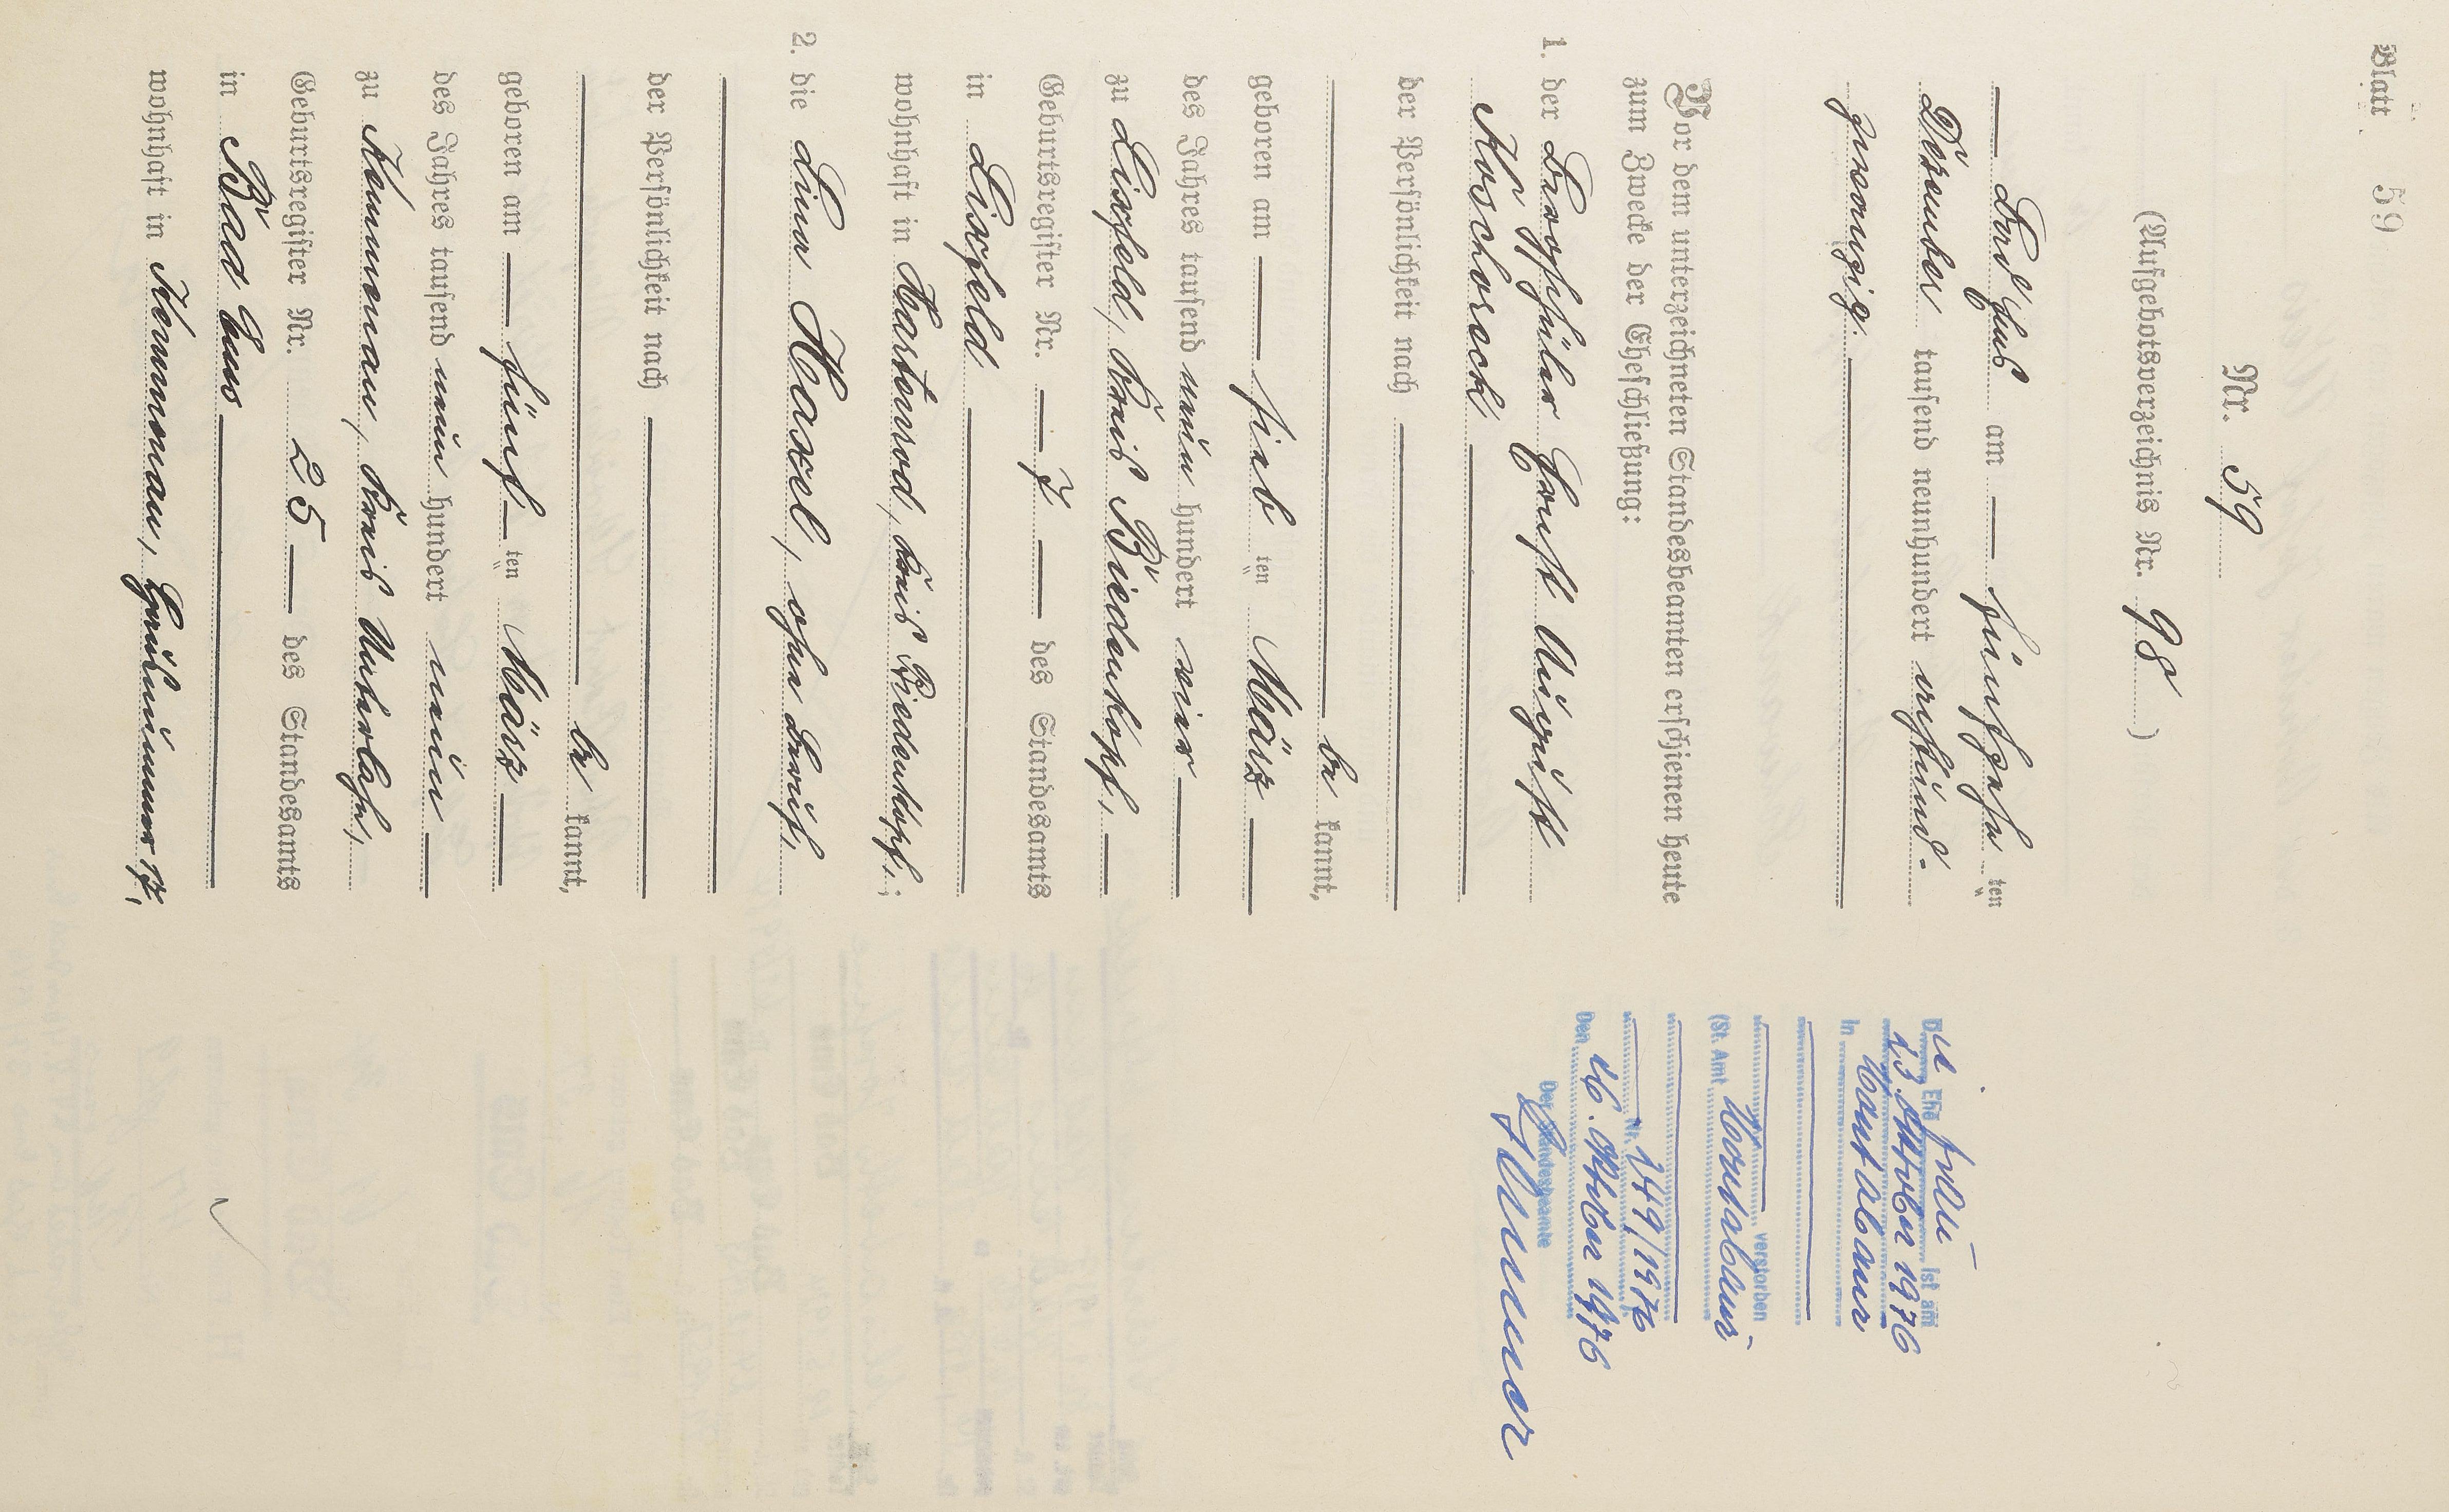 Blatt 59
Nr. 59
(Aufgebotsverzeichnis Nr. 98)
Bad Ems am fünfzehn ten
Dezember tausend neunhundert achtund-
zwanzig.
Vor dem unterzeichneten Standesbeamten erschienen heute
zum Zwecke der Eheschließung:
1. der Bergschüler Ernst August
Koschoreck
der Persönlichkeit nach
be kannt,
geboren am sieb ten März
des Jahres tausend neun hundert vier
zu Lixfeld, Kreis Biedenkopf,
Geburtsregister Nr. 7 des Standesamts
in Lixfeld
wohnhaft in Hartenrod, Kreis Biedenkopf,;
2. die Lina Haxel, ohne Beruf,
der Persönlichkeit nach
be kannt,
geboren am fünf ten März
des Jahres tausend neun hundert neun
zu Kemmenau, Kreis Unterlahn,
Geburtsregister Nr. 25 des Standesamts
in Bad Ems
wohnhaft in Kemmenau, Hausnummer 17,
Die Ehefrau ist am
23. Oktober 1976
in Montabaur
verstorben
(St. Amt Montabaur
Nr. 149/1976
Den 26. Oktober 1976
Der Standesbeamte